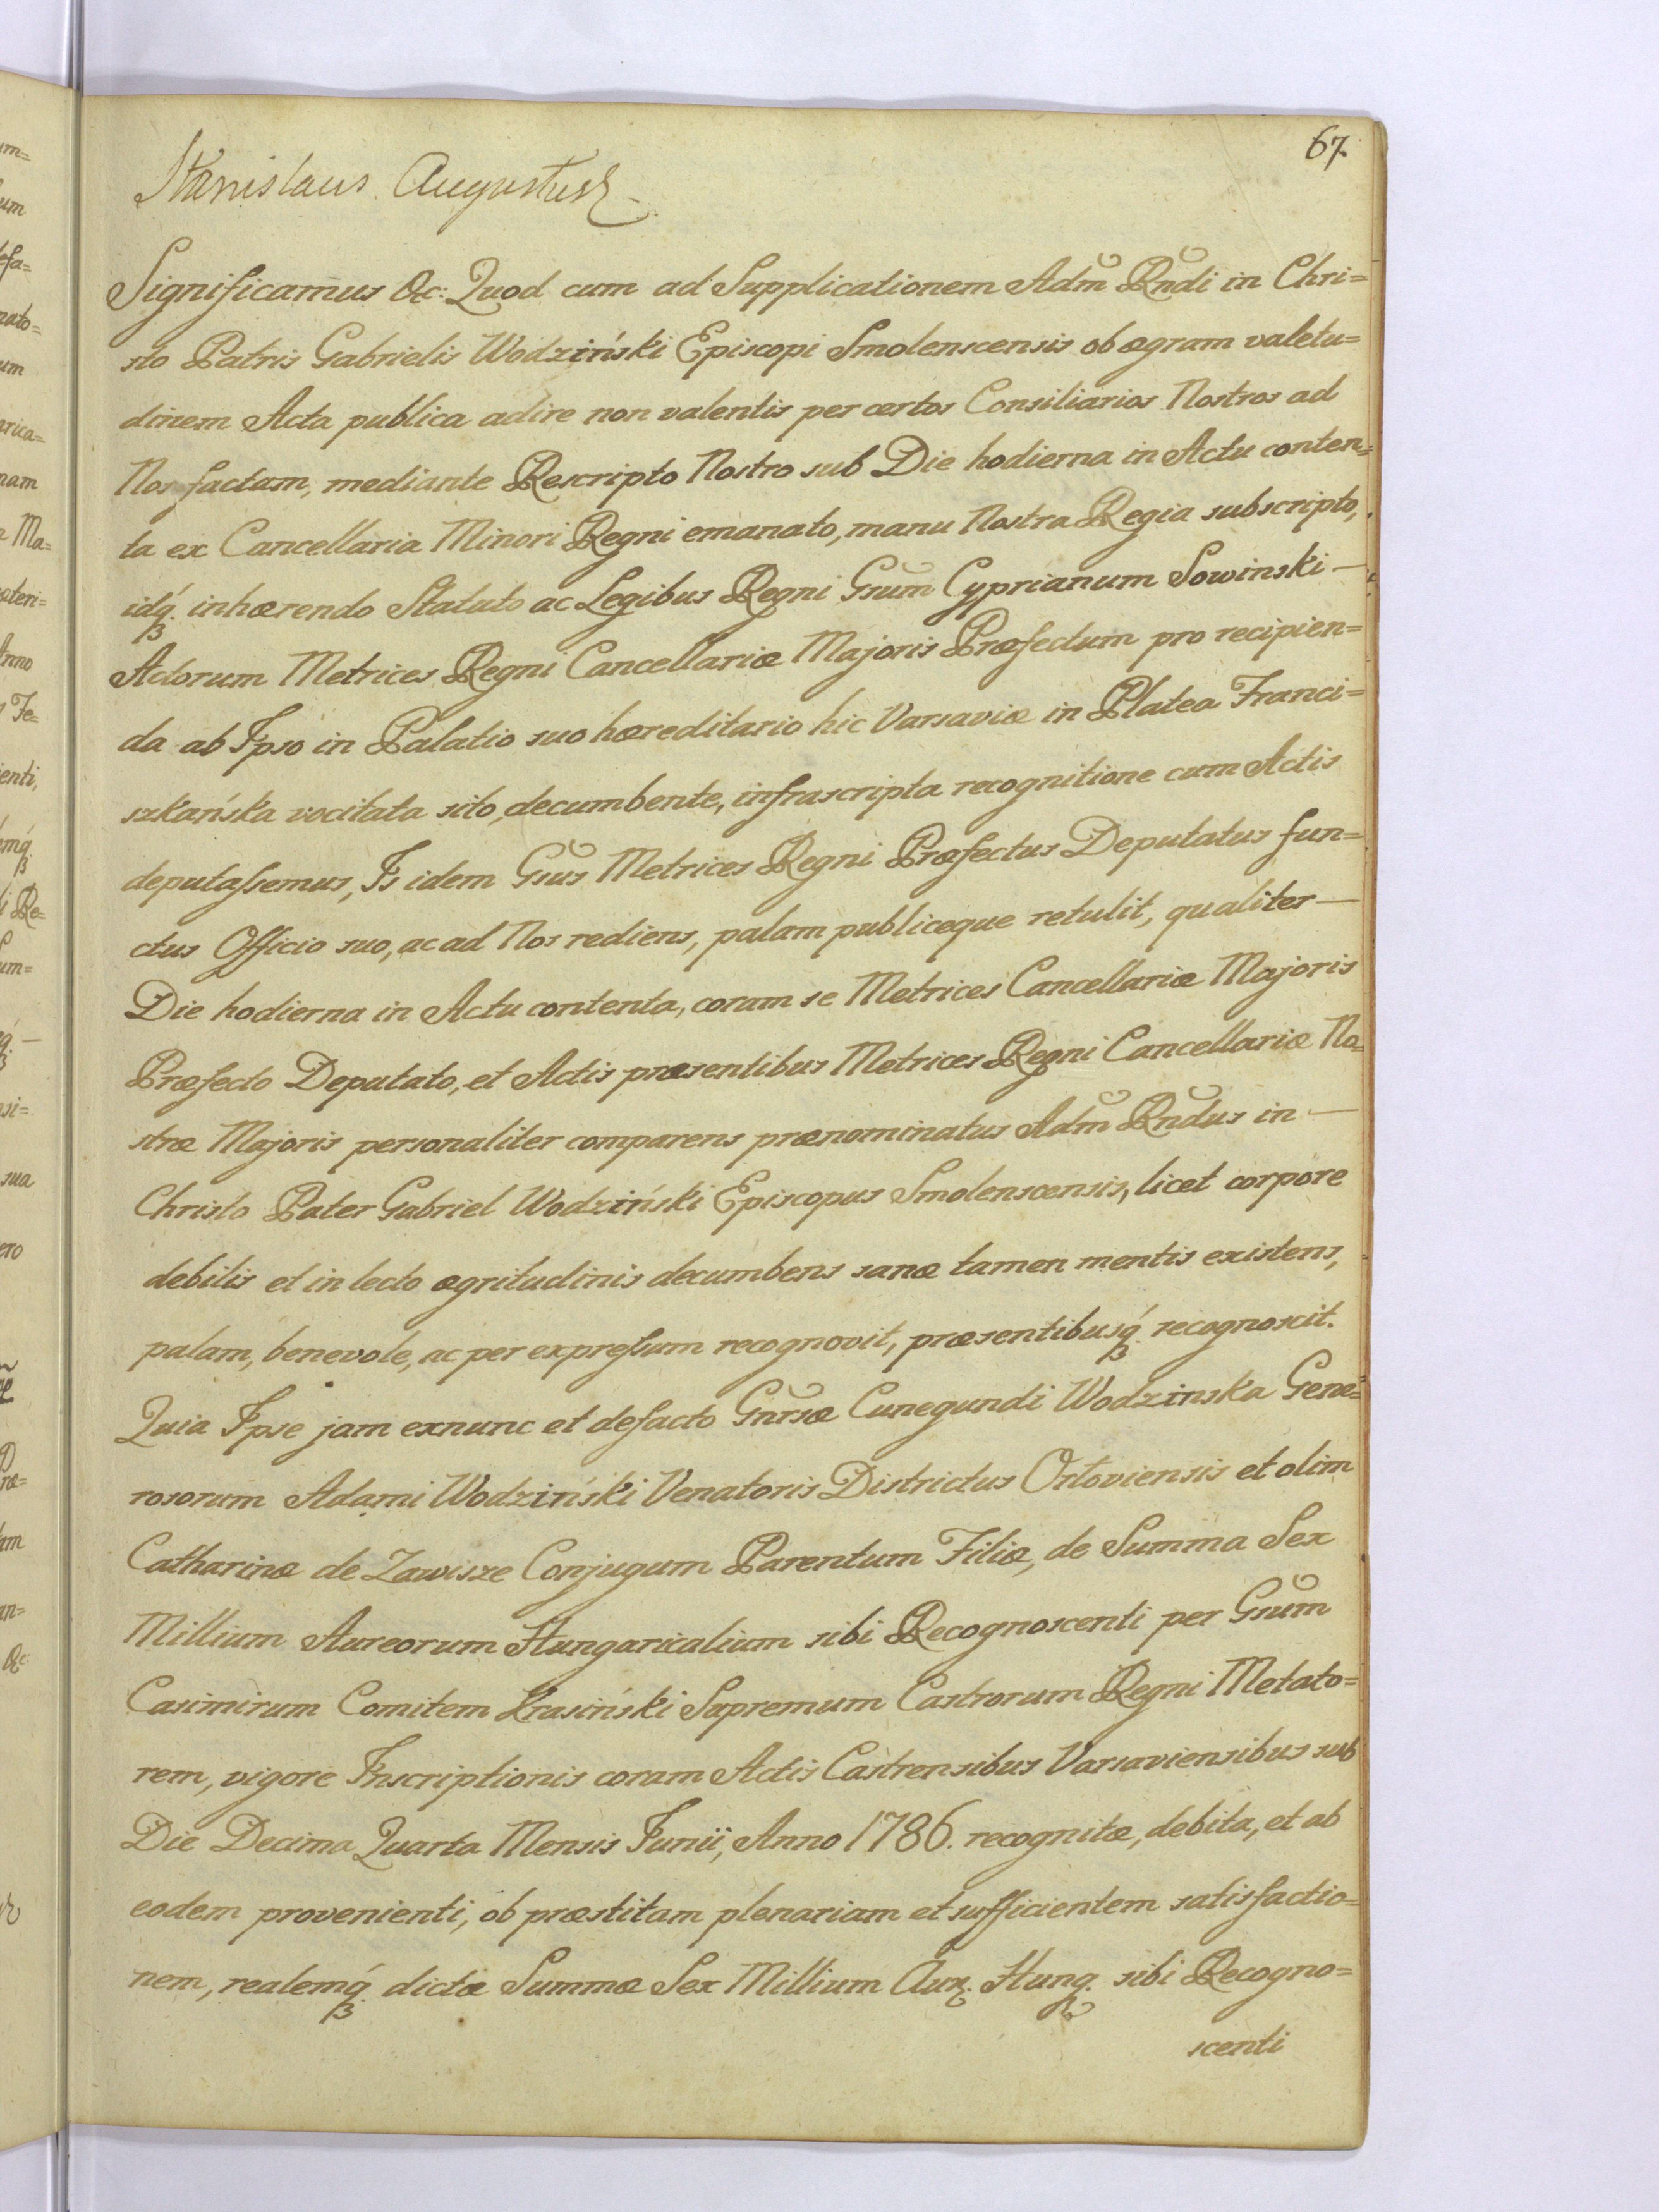 67.
Stanislaus Augustus
Significamus &c: Quod cum ad Supplicationem Adm Rndi in Chri=
sto Patris Gabrielis Wodziński Episcopi Smolenscensis ob ægram valetu=
dinem Acta publica adire non valentis per certos Consiliarios Nostros ad
Nos factam, mediante Rescripto Nostro sub Die hodierna in Actu conten=
ta ex Cancellaria Minori Regni emanato, manu Nostra Regia subscripto,
idq́ inhærendo Statuto ac Legibus Regni Gsum Cyprianum Sowinski —
Actorum Metrices Regni Cancellariæ Majoris Præfectum pro recipien=
da ab Ipso in Palatio suo hæreditario hic Varsaviæ in Platea Franci=
szkańska vocitata sito, decumbente, infrascripta recognitione cum Actis
deputaſsemus, Is idem Gsus Metrices Regni Præfectus Deputatus fun=
ctus Officio suo, ac ad Nos rediens, palam publiceque retulit, qualiter —
Die hodierna in Actu contenta, coram se Metrices Cancellariæ Majoris
Præfecto Deputato, et Actis præsentibus Metrices Regni Cancellariæ No=
stræ Majoris personaliter comparens prænominatus Adm Rndus in —
Christo Pater Gabriel Wodziński Episcopus Smolenscensis, licet corpore
debilis et in lecto ægritudinis decumbens sanæ tamen mentis existens,
palam, benevole, ac per expreſsum recognovit, præsentibusq́ recognoscit.
Quia Ipse jam exnunc et defacto Gnrsæ Cunegundi Wodzinska Gene=
rosorum Adami Wodziński Venatoris Districtus Orłoviensis et olim
Catharinæ de Zawisze Conjugum Parentum Filiæ, de Summa Sex
Millium Aureorum Hungaricalium sibi Recognoscenti per Gsum
Casimirum Comitem Krasiński Supremum Castrorum Regni Metato=
rem, vigore Inscriptionis coram Actis Castrensibus Varsaviensibus sub
Die Decima Quarta Mensis Junii, Anno 1786. recognitæ, debita, et ab
eodem provenienti, ob præstitam plenariam et sufficientem satisfactio=
nem, realemq́ dictæ Summæ Sex Millium Aur. Hung. sibi Recogno=
scenti